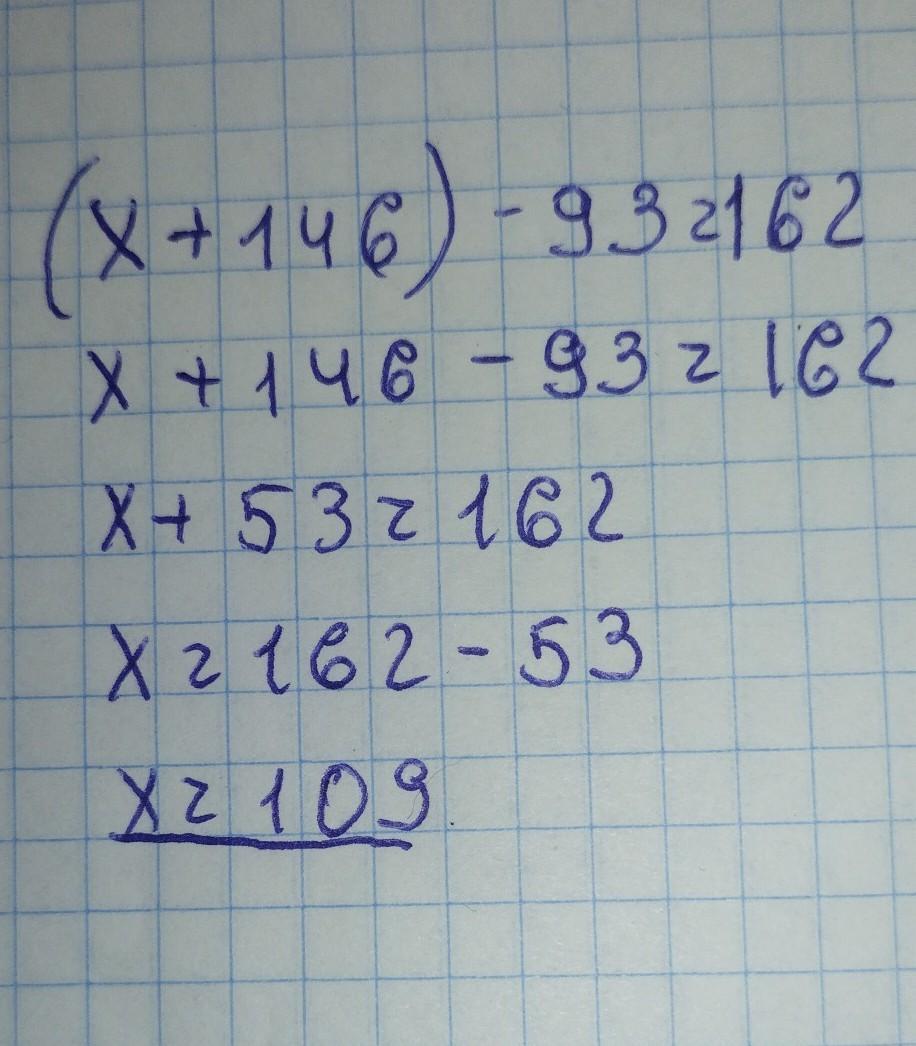 (x + 146) - 93 = 162
x + 146 - 93 = 162
x + 53 = 162
x = 162 - 53
x = 109